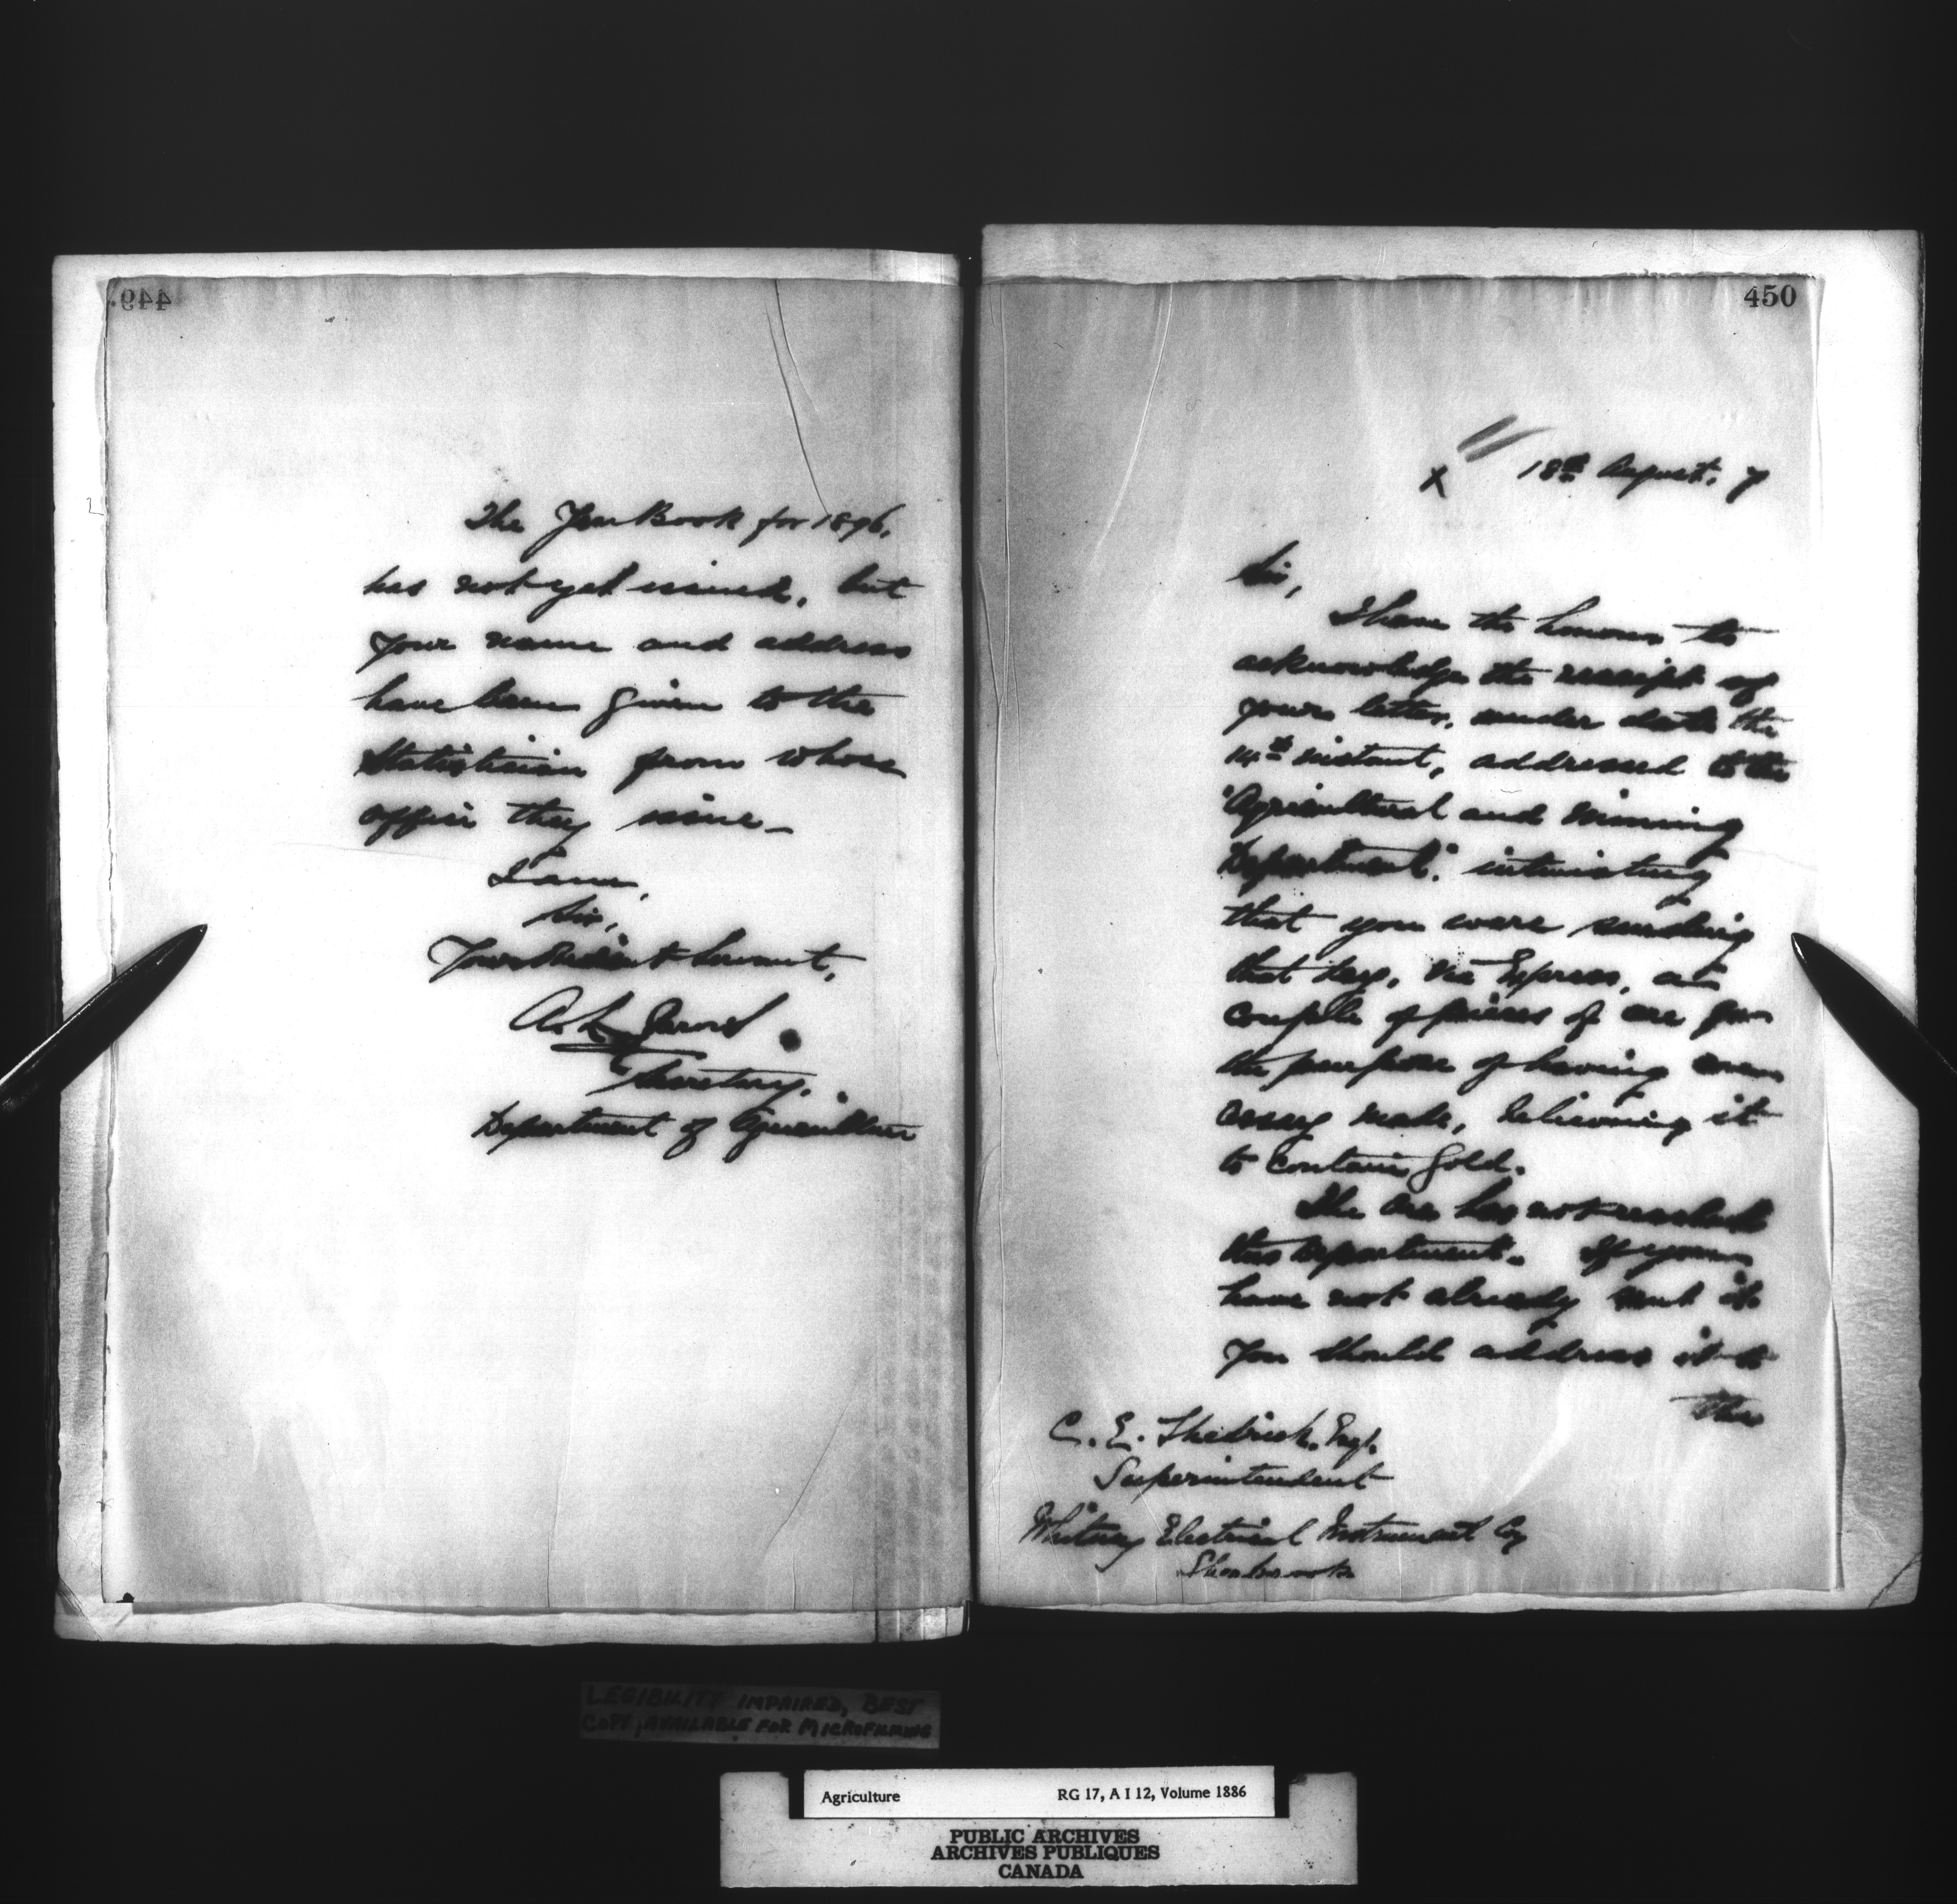 449.
The Year Book for 1896,
has not yet issued, but
your name and address
have been given to the
Statistician from whose
office they issue—
I am,
Sir,
Your Obedient Servant,
A. L. Jarvis
Secretary.
Department of Agriculture
450
X 18th August. 7
Sir,
I have the honour to
acknowledge the receipt of
your letter, under date the
14th instant, addressed to the
"Agricultural and Mining
Department." intimating
that you were sending
that day, via Express, a
couple of pieces of ore for
the purpose of having an
assay made, believing it
to contain gold.
The ore has not reached
this Department. If you
have not already sent it
you should address it to
the
C. E. Esqr.
Superintendent
Whitney Electrical Instrument Coy
Sherbrooke
LEGIBILITY IMPAIRED, BEST
COPY AVAILABLE FOR MICROFILMING
Agriculture RG 17, A I 12, Volume 1886
PUBLIC ARCHIVES
ARCHIVES PUBLIQUES
CANADA